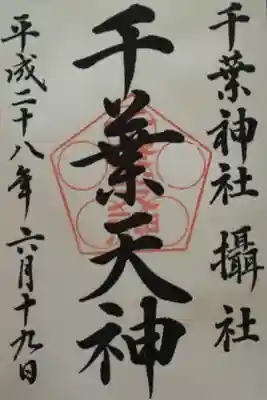 千葉神社 攝社
千葉天神
平成二十八年 六月十九日